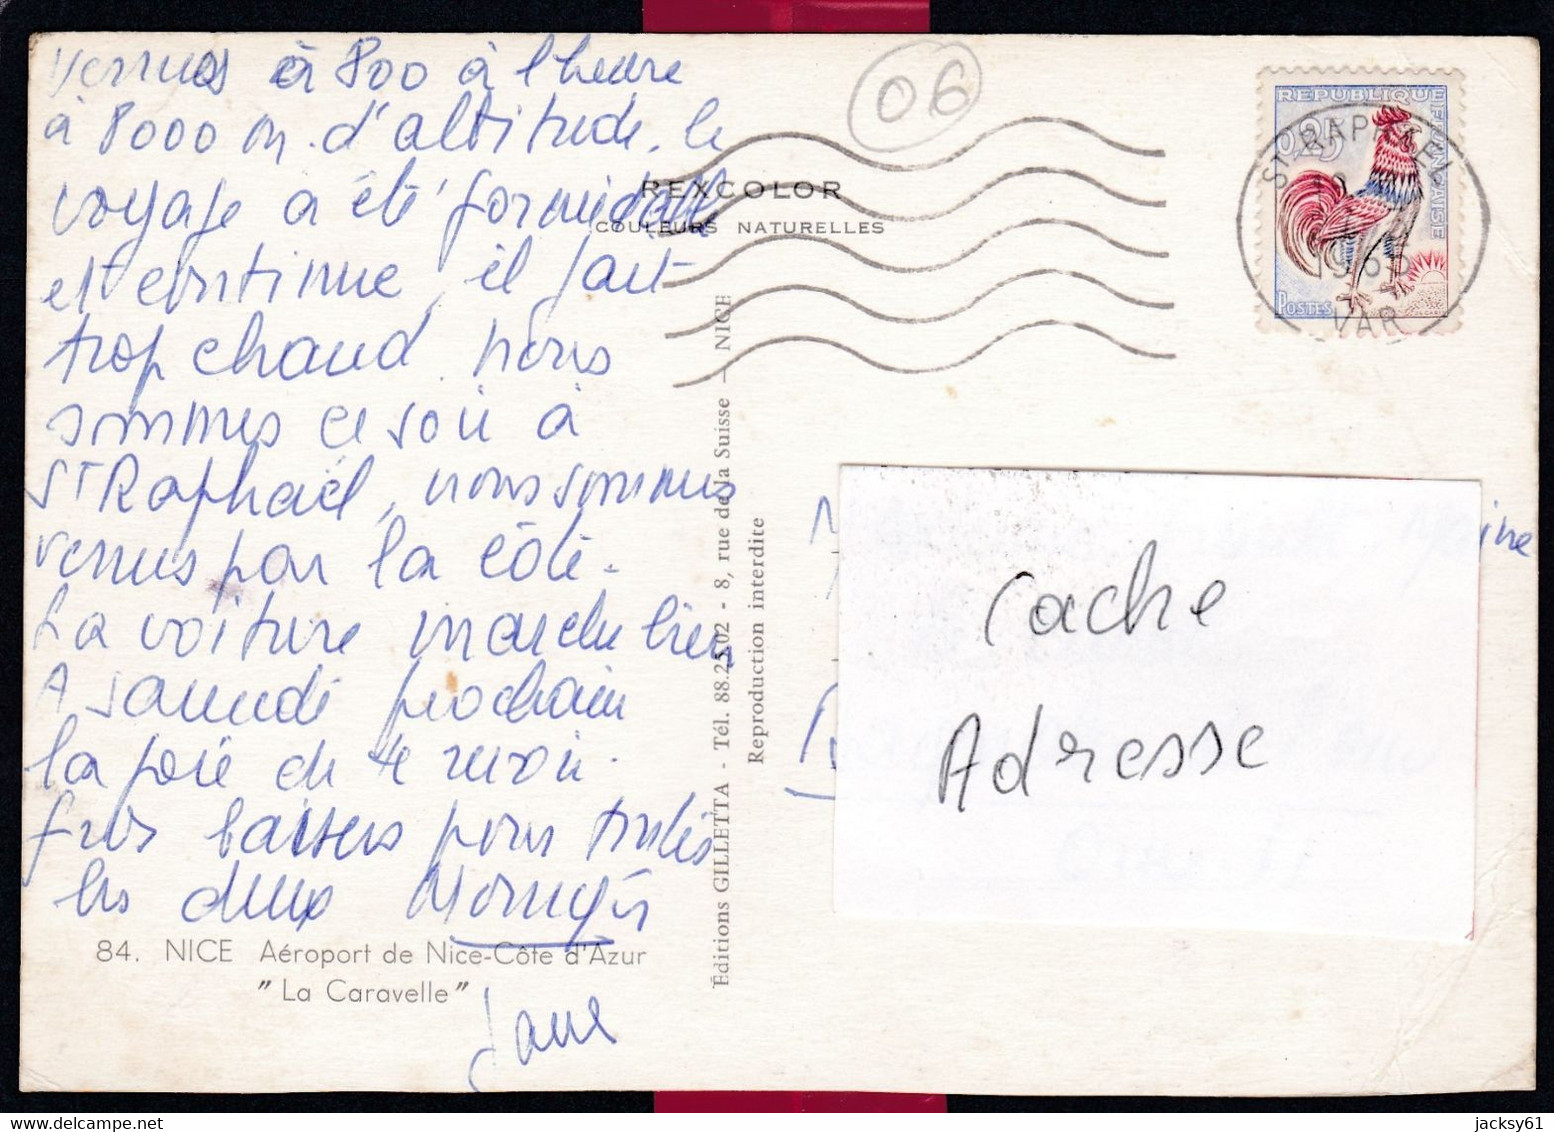 venues à 800 à l'heure
à 8000 m. d'altitude. le
voyage a été formidable
et continue, il fait
trop chaud. nous
sommes ce soir à
St Raphaël, nous sommes
venus par la côte.
La voiture marche bien
A samedi prochain
la joie de te revoir.
gros baisers pour toutes
les deux
Jane
84. NICE Aéroport de Nice-Côte d'Azur
"La Caravelle"
REXCOLOR
COULEURS NATURELLES
Éditions GILLETTA - Tél. 88.25.02 - 8, rue de la Suisse - NICE
Reproduction interdite
06
REPUBLIQUE FRANÇAISE
0,25
POSTES
ST RAPHAEL
VAR
Cache
Adresse
jacksy61